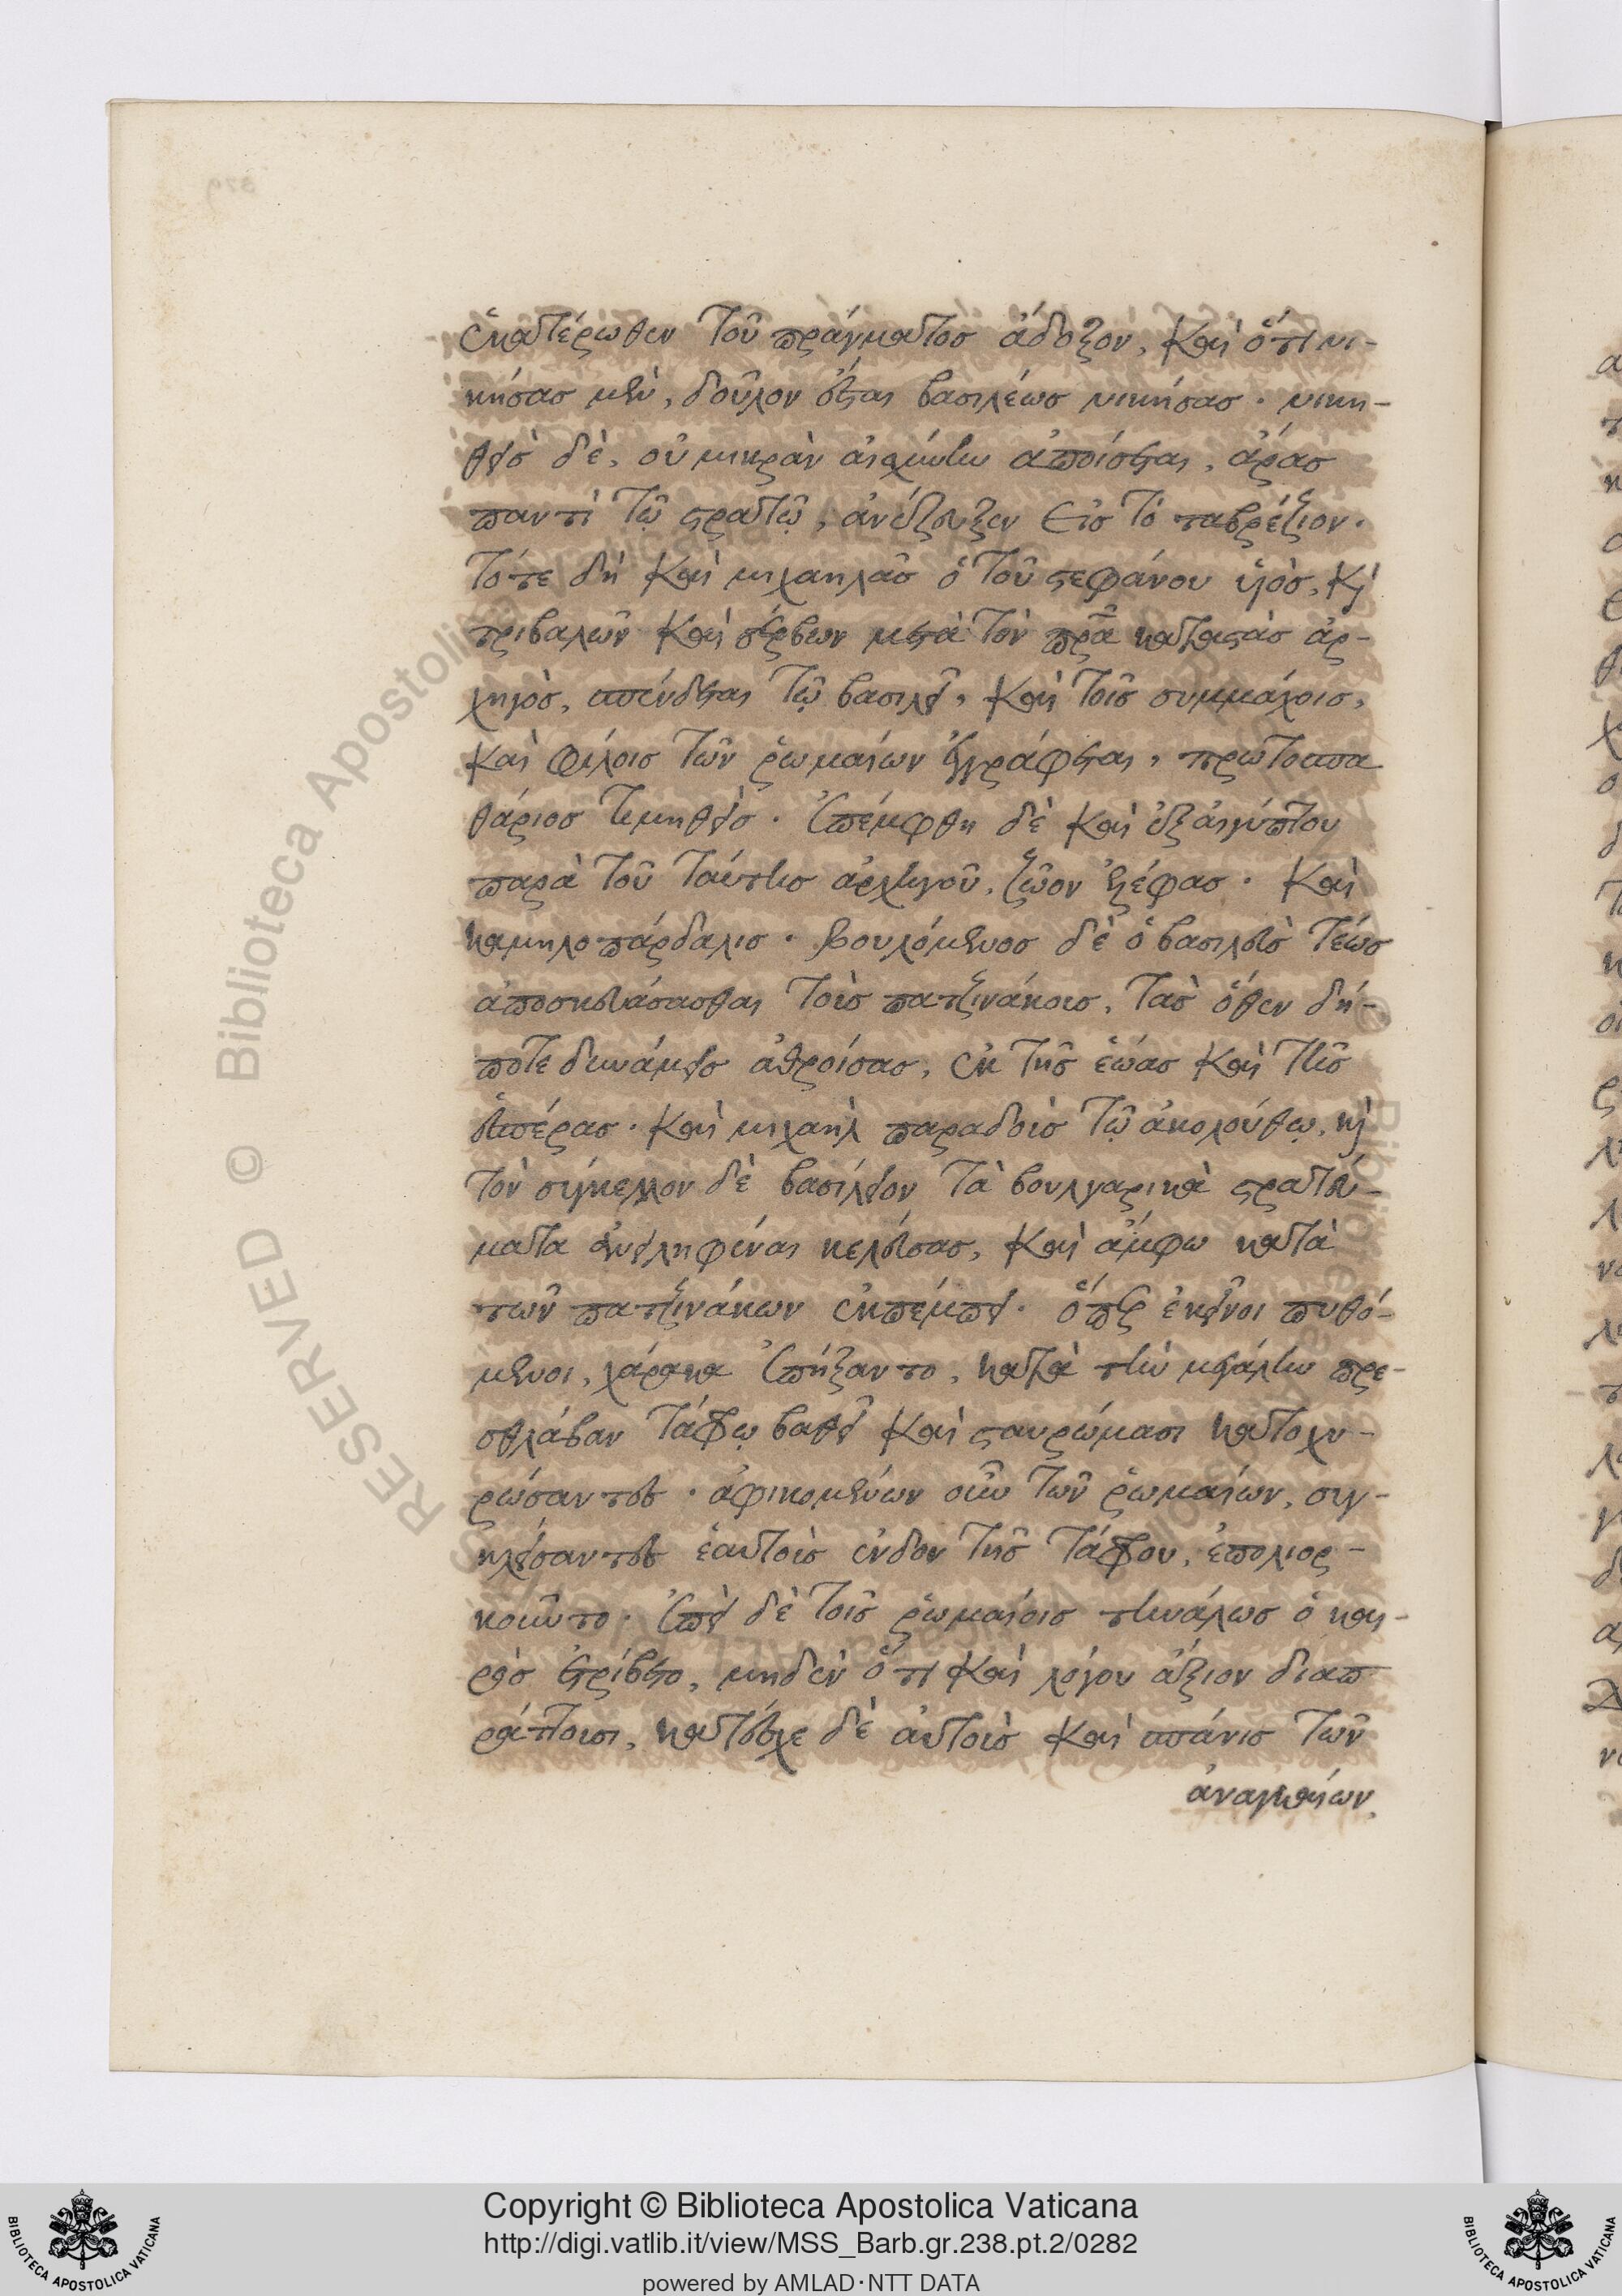 ἑκατέρωθεν τοῦ πράγματος ἄδοξον, καὶ ὅτι νι-
κήσας μὲν, δοῦλον ἔσται βασιλέως νικήσας. νικη-
θεὶς δὲ, οὐ μικρὰν αἰσχύνην ἀποίσεται, ἄρας
παντὶ τῷ στρατῷ, ἀνέζευξεν εἰς τὸ ταβρέζιον.
τότε δὴ καὶ μιχαηλᾶς ὁ τοῦ στεφάνου υἱὸς, καὶ
τριβαλῶν καὶ σέρβων μετὰ τὸν πρα καταστὰς ἀρ-
χηγὸς, σπένδεται τῷ βασιλεῖ, καὶ τοῖς συμμάχοις,
καὶ φίλοις τῶν ῥωμαίων ἐγγράφεται, πρωτοσπα
θάριος τιμηθεὶς. ἐπέμφθη δὲ καὶ ἐξ αἰγύπτου
παρὰ τοῦ ταύτης ἀρχηγοῦ, ζῶον ἐλέφας. καὶ
καμηλοπάρδαλις. βουλόμενος δὲ ὁ βασιλεὺς τέως
ἀποσκευάσασθαι τοὺς πατζινάκους, τὰς ὅθεν δή-
ποτε δυνάμεις ἀθροίσας, ἐκ τῆς ἑώας καὶ τῆς
ἑσπέρας. καὶ μιχαὴλ παραδοὺς τῷ ἀκολούθῳ, καὶ
τὸν σύγκελλον δὲ βασίλειον τὰ βουλγαρικὰ στρατεύ-
ματα ἀνειληφέναι κελεύσας, καὶ ἄμφω κατὰ
τῶν πατζινάκων ἐκπέμπει. ὅπερ ἐκεῖνοι πυθό-
μενοι, χάρακα ἐπήξαντο, κατὰ τὴν μεγάλην πρε-
σθλάβαν τάφρῳ βαθεῖ καὶ σταυρώμασι κατοχυ-
ρώσαντες. ἀφικομένων οὖν τῶν ῥωμαίων, συγ-
κλείσαντες ἑαυτοὺς ἔνδον τῆς τάφρου, ἐπολιορ-
κοῦντο. ἐπεὶ δὲ τοῖς ῥωμαίοις τηνάλως ὁ και-
ρὸς ἐτρίβετο, μηδὲν ὅτι καὶ λόγου ἄξιον διαπ
ράττουσι, κατέσχε δὲ αὐτοὺς καὶ σπάνις τῶν
ἀναγκαίων,
Copyright © Biblioteca Apostolica Vaticana
http://digi.vatlib.it/view/MSS_Barb.gr.238.pt.2/0282
powered by AMLAD·NTT DATA